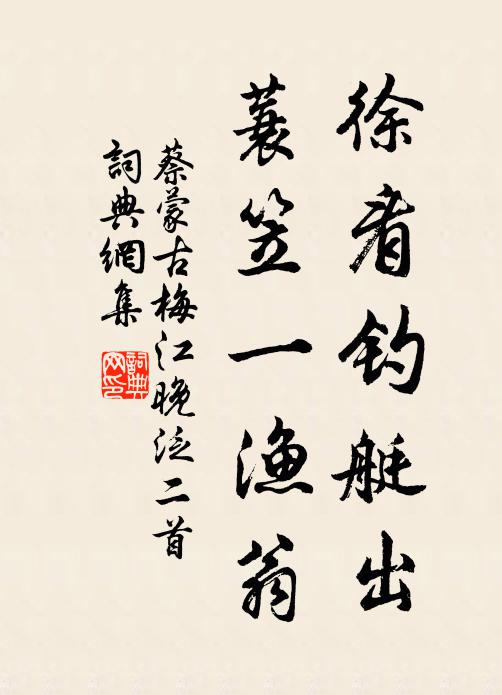 徐看釣艇出
蓑笠一漁翁
蔡蒙古梅江晚泛二首
詞典網集
詞典網印